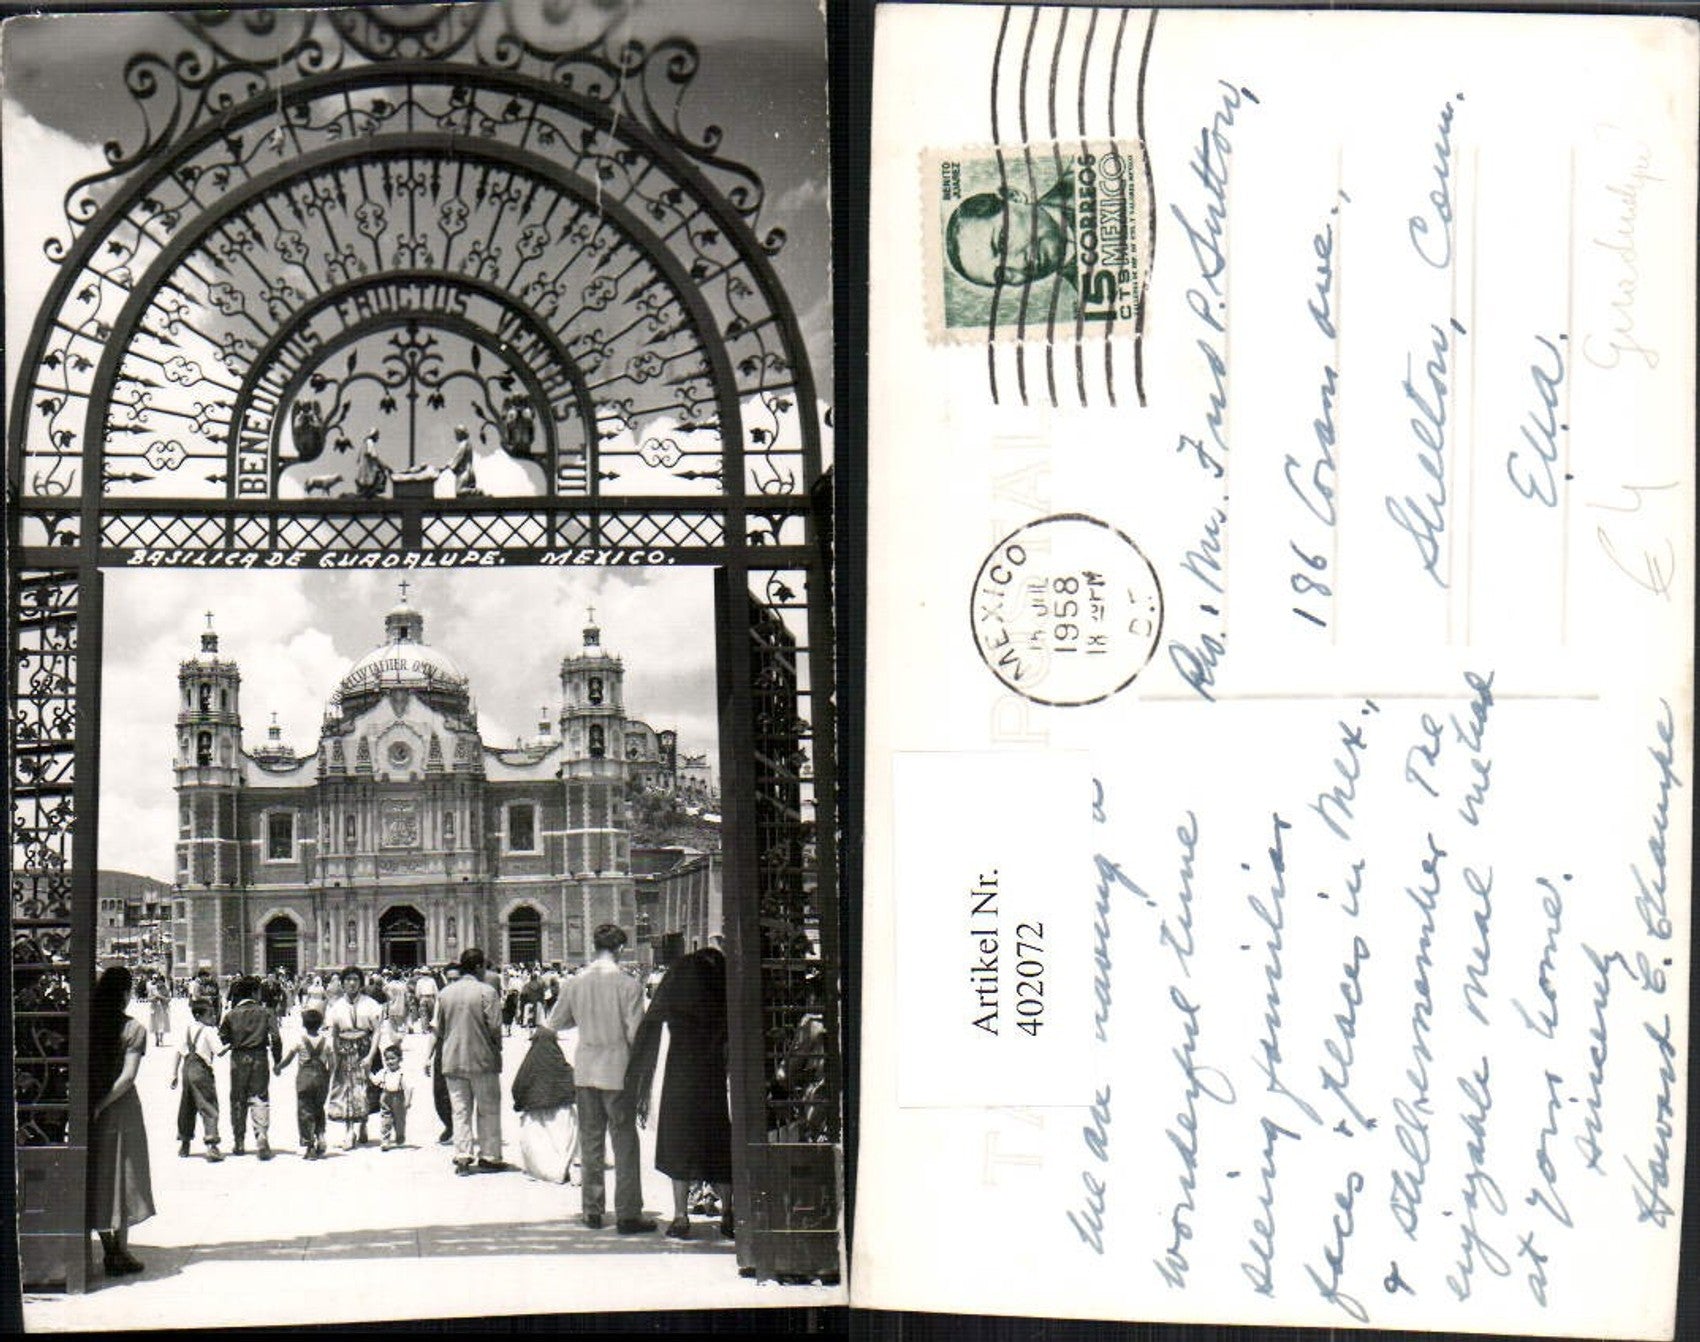 BENEDICTUS FRUCTUS VENTRIS TUI
BASILICA DE GUADALUPE. MEXICO.
BENITO
JUAREZ
15 CORREOS
CTS MEXICO
MEXICO
JUL
1958
18
D.F.
Artikel Nr.
4020072
We are having a
wonderful time
seeing familiar
faces & places in Mex.,
& still remember the
enjoyable meal we had
at your home.
Sincerely
Howard E. Champe
Rev. & Mrs. Fred P. Sutton,
186 Coram Ave.,
Shelton, Conn.